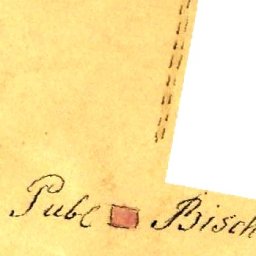 Publ Bisch